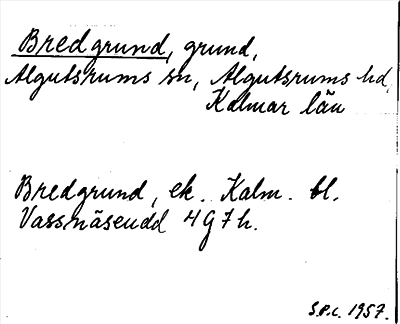 Bredgrund, grund,
Algutsrums sn, Algutsrums hd,
Kalmar län
Bredgrund, ek. Kalm. bl.
Vassnäsudd 4G7h.
S.P.C. 1957.